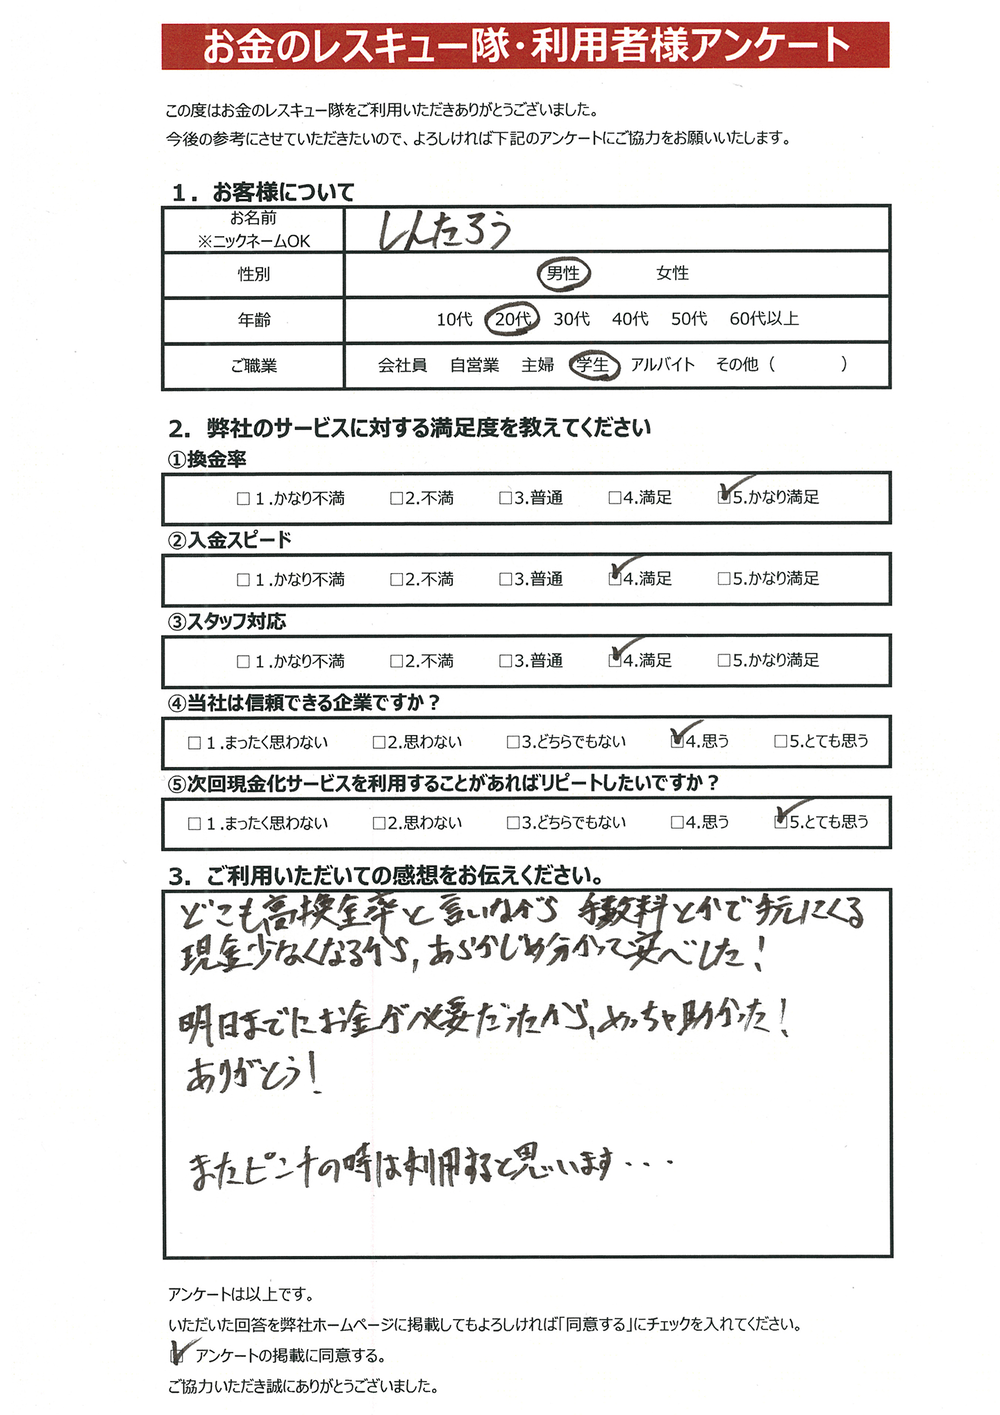 お金のレスキュー隊・利用者様アンケート
この度はお金のレスキュー隊をご利用いただきありがとうございました。
今後の参考にさせていただきたいので、よろしければ下記のアンケートにご協力をお願いいたします。
1. お客様について
お名前
※ニックネームOK
しんたろう
性別 男性 女性
年齢 10代 20代 30代 40代 50代 60代以上
ご職業 会社員 自営業 主婦 学生 アルバイト その他（ ）
2. 弊社のサービスに対する満足度を教えてください
①換金率
□1.かなり不満 □2.不満 □3.普通 □4.満足 ☑5.かなり満足
②入金スピード
□1.かなり不満 □2.不満 □3.普通 ☑4.満足 □5.かなり満足
③スタッフ対応
□1.かなり不満 □2.不満 □3.普通 ☑4.満足 □5.かなり満足
④当社は信頼できる企業ですか？
□1.まったく思わない □2.思わない □3.どちらでもない ☑4.思う □5.とても思う
⑤次回現金化サービスを利用することがあればリピートしたいですか？
□1.まったく思わない □2.思わない □3.どちらでもない □4.思う ☑5.とても思う
3. ご利用いただいての感想をお伝えください。
どこも高換金率と言いながら 手数料とかで手元にくる
現金少なくなるから,あらかじめ分かって安心でした!
明日までにお金が必要だったから,めっちゃ助かった!
ありがとう!
またピンチの時は利用すると思います・・・
アンケートは以上です。
いただいた回答を弊社ホームページに掲載してもよろしければ「同意する」にチェックを入れてください。
☑ アンケートの掲載に同意する。
ご協力いただき誠にありがとうございました。